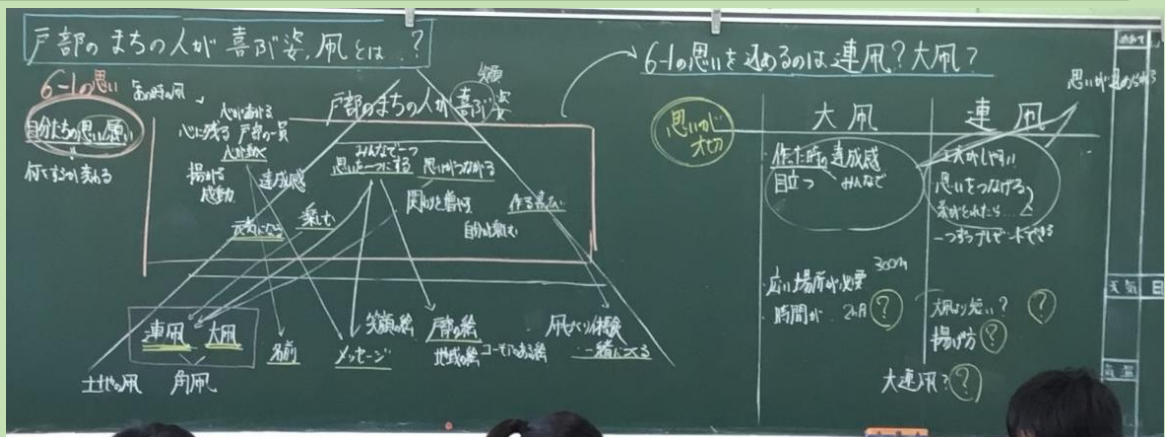 戸部のまちの人が喜ぶ姿、凧とは?
6-1の思い
あの時の凧
自分たちの思い願い
何をするか変わる
心があがる
心に残る 戸部の一員
心が動く
揚がる
感動
達成感
元気になる
楽しむ
笑顔
戸部のまちの人が喜ぶ姿
みんなで一つ
思いを一つにする
思いがつながる
関わりを増やす
自分も楽しむ
作る喜び
連凧 大凧
土地の凧 角凧
名前
メッセージ
笑顔の絵
戸部の絵
地域の絵
ユーモアのある絵
凧づくり体験
一緒につくる
6-1の思いを込めるのは連凧?大凧?
思いが込められる
思いが大切
大凧
作った時の達成感
目立つ みんなで
広い場所が必要
300m
時間が 2ヵ月 ?
連凧
工夫がしやすい
思いをつなげる
糸がとれたら…
一つずつプレゼントできる
大凧より短い? ?
揚げ方 ?
大連凧? ?
めあて
天気
日
気温